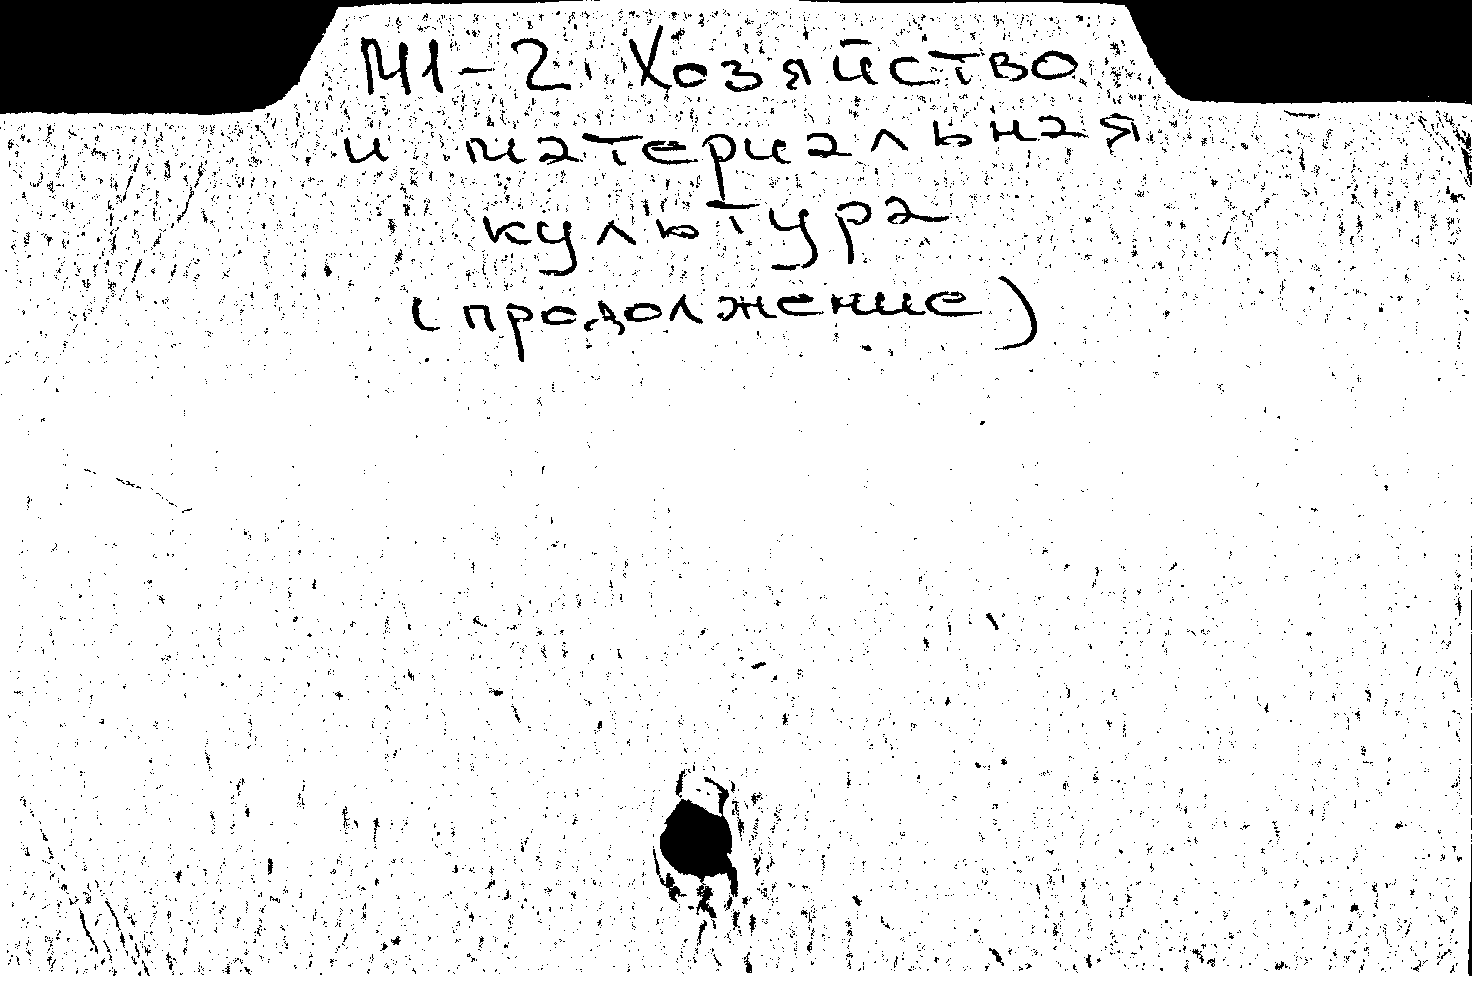 М1-2. Хозяйство
и материальная
культура
(продолжение)